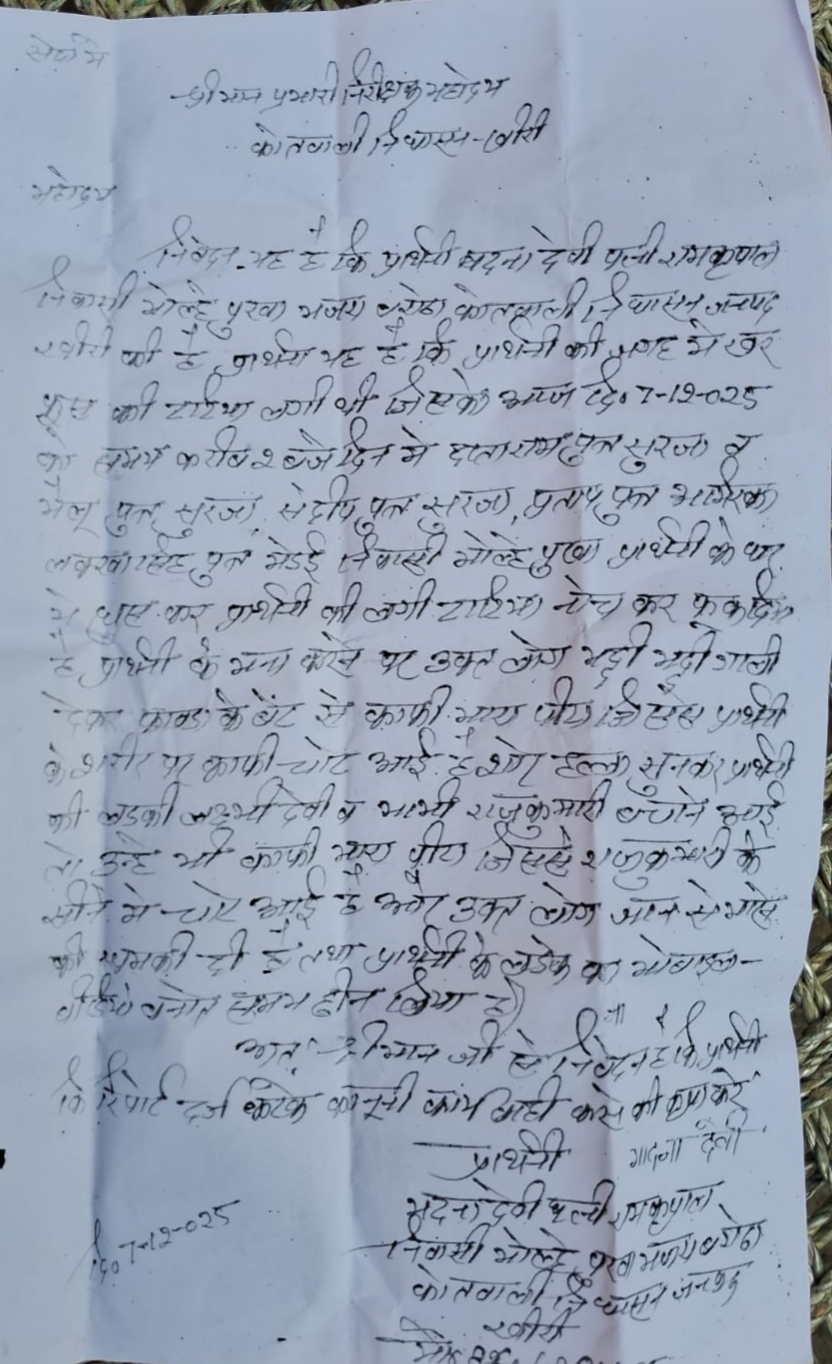 सेवा मे
श्रीमान प्रभारी निरीक्षक महोदय
कोतवाली निघासन-खीरी
महोदय
निवेदन यह है कि प्रार्थिनी मदना देवी पत्नी रामकृपाल
निवासी मोल्हे पुरवा मजरा बरोठा कोतवाली निघासन जनपद
खीरी की है प्रार्थना यह है कि प्रार्थिनी की जगह मे खर
फूस की टटिया लगी थी जिसको आज दि० 7-12-025
को समय करीब 2 बजे दिन मे दाताराम पुत्र सुरजा व
मैकू पुत्र सुरजा, संदीप पुत्र सुरजा, प्रताप पुत्र
पुत्र मेडई निवासी मोल्हे पुरवा प्रार्थिनी के घर
मे घुस कर प्रार्थिनी की लगी टटिया नोच कर फूक दिया
है प्रार्थिनी के मना करने पर उक्त लोग भद्दी भद्दी गाली
देकर फावडा के बेंट से काफी मारा पीटा जिससे प्रार्थिनी
के शरीर पर काफी चोट आई है शोर हल्ला सुनकर प्रार्थिनी
की लडकी लक्ष्मी देवी व भाभी राजकुमारी बचाने आई
तो उन्हे भी काफी मारा पीटा जिससे राजकुमारी के
सीने मे चोट आई है और उक्त लोग जान से मारने
की धमकी दी है तथा प्रार्थिनी के लडके का मोबाइल-
वीडियो बनाते समय छीन लिया है।
अतः श्रीमान जी से निवेदन है कि प्रार्थिनी
कि रिपोर्ट दर्ज करके कानूनी कार्य वाही करने की कृपा करें
प्रार्थिनी देवी
मदना देवी पत्नी रामकृपाल
निवासी मोल्हे पुरवा मजरा बरोठा
कोतवाली निघासन जनपद
खीरी
दि० 7-12-025